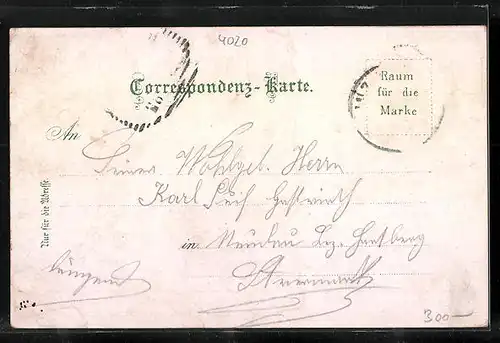 4020
Correspondenz-Karte.
Raum
für die
Marke
An
Seiner Wohlgeb. Herrn
Karl
in Neudau Bez. Hartberg
Steiermark
Nur für die Adresse
300-